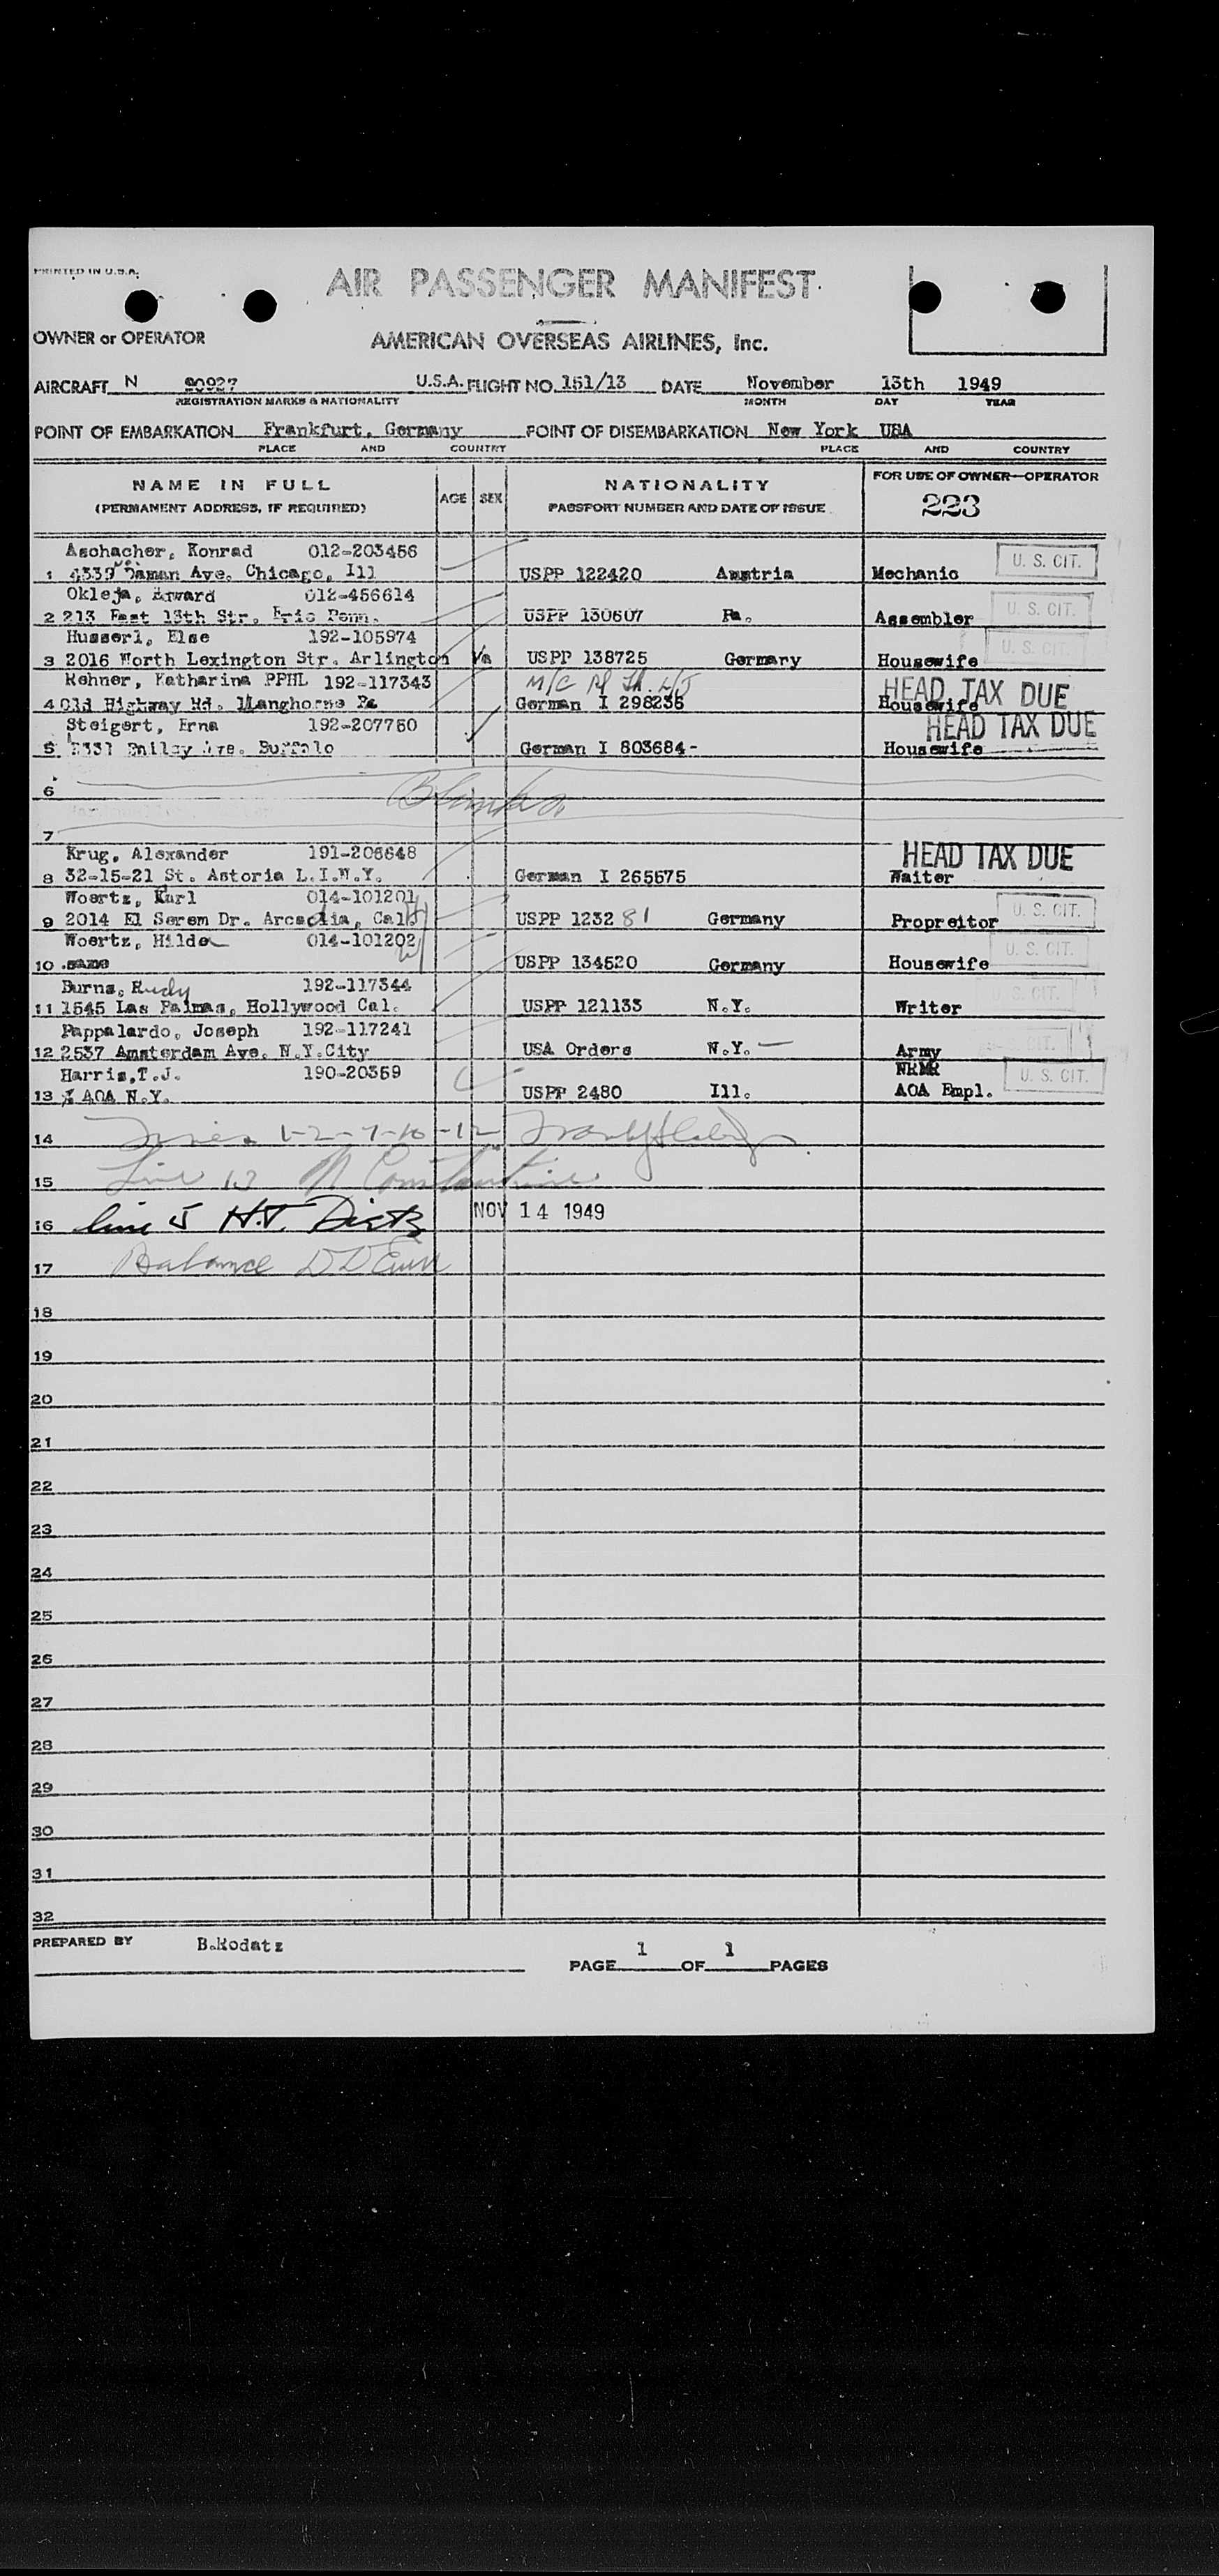 PRINTED IN U.S.A.
AIR PASSENGER MANIFEST
OWNER or OPERATOR
AMERICAN OVERSEAS AIRLINES, Inc.
AIRCRAFT N 90927 U.S.A. FLIGHT NO. 151/13 DATE November 13th 1949
REGISTRATION MARKS & NATIONALITY MONTH DAY YEAR
POINT OF EMBARKATION Frankfurt, Germany POINT OF DISEMBARKATION New York USA
PLACE AND COUNTRY PLACE AND COUNTRY
NAME IN FULL AGE SEX NATIONALITY FOR USE OF OWNER—OPERATOR
(PERMANENT ADDRESS, IF REQUIRED) PASSPORT NUMBER AND DATE OF ISSUE 223
Aschacher, Konrad 012-203456 U. S. CIT.
1 4339 Daman Ave. Chicago, Ill USPP 122420 Austria Mechanic
Okleja, Edward 012-456614 U. S. CIT.
2 213 East 13th Str. Erie Penn. USPP 130607 Pa. Assembler
Husserl, Else 192-105974 U. S. CIT.
3 2016 North Lexington Str. Arlington Va USPP 138725 Germany Housewife
Rehner, Katharina PPHL 192-117343 M/C HEAD TAX DUE
4 Old Highway Rd. Langhorne Pa German I 298236 Housewife
Steigert, Erna 192-207760 HEAD TAX DUE
5 Ave. Buffalo German I 803684- Housewife
6 Blank
7
Krug, Alexander 191-206648 HEAD TAX DUE
8 32-15-21 St. Astoria L.I.N.Y. German I 265575 Waiter
Woertz, Karl 014-101201 U. S. CIT.
9 2014 El Serem Dr. Arcadia, Cal USPP 123281 Germany Propreitor
Woertz, Hilde 014-101202 U. S. CIT.
10 same USPP 134520 Germany Housewife
Burns, Rudy 192-117344 U. S. CIT.
11 1545 Las Palmas, Hollywood Cal. USPP 121133 N.Y. Writer
Pappalardo, Joseph 192-117241 U. S. CIT.
12 2537 Amsterdam Ave. N.Y.City USA Orders N.Y. Army
Harris,T.J. 190-20359 NRMR U. S. CIT.
13 AOA N.Y. USPP 2480 Ill. AOA Empl.
14 Lines 1-2-7-10-12
15 Line 13 Constantine
16 line 5 H.T. Dietz NOV 14 1949
17 Balance
18
19
20
21
22
23
24
25
26
27
28
29
30
31
32
PREPARED BY B.Rodatz
PAGE 1 OF 1 PAGES